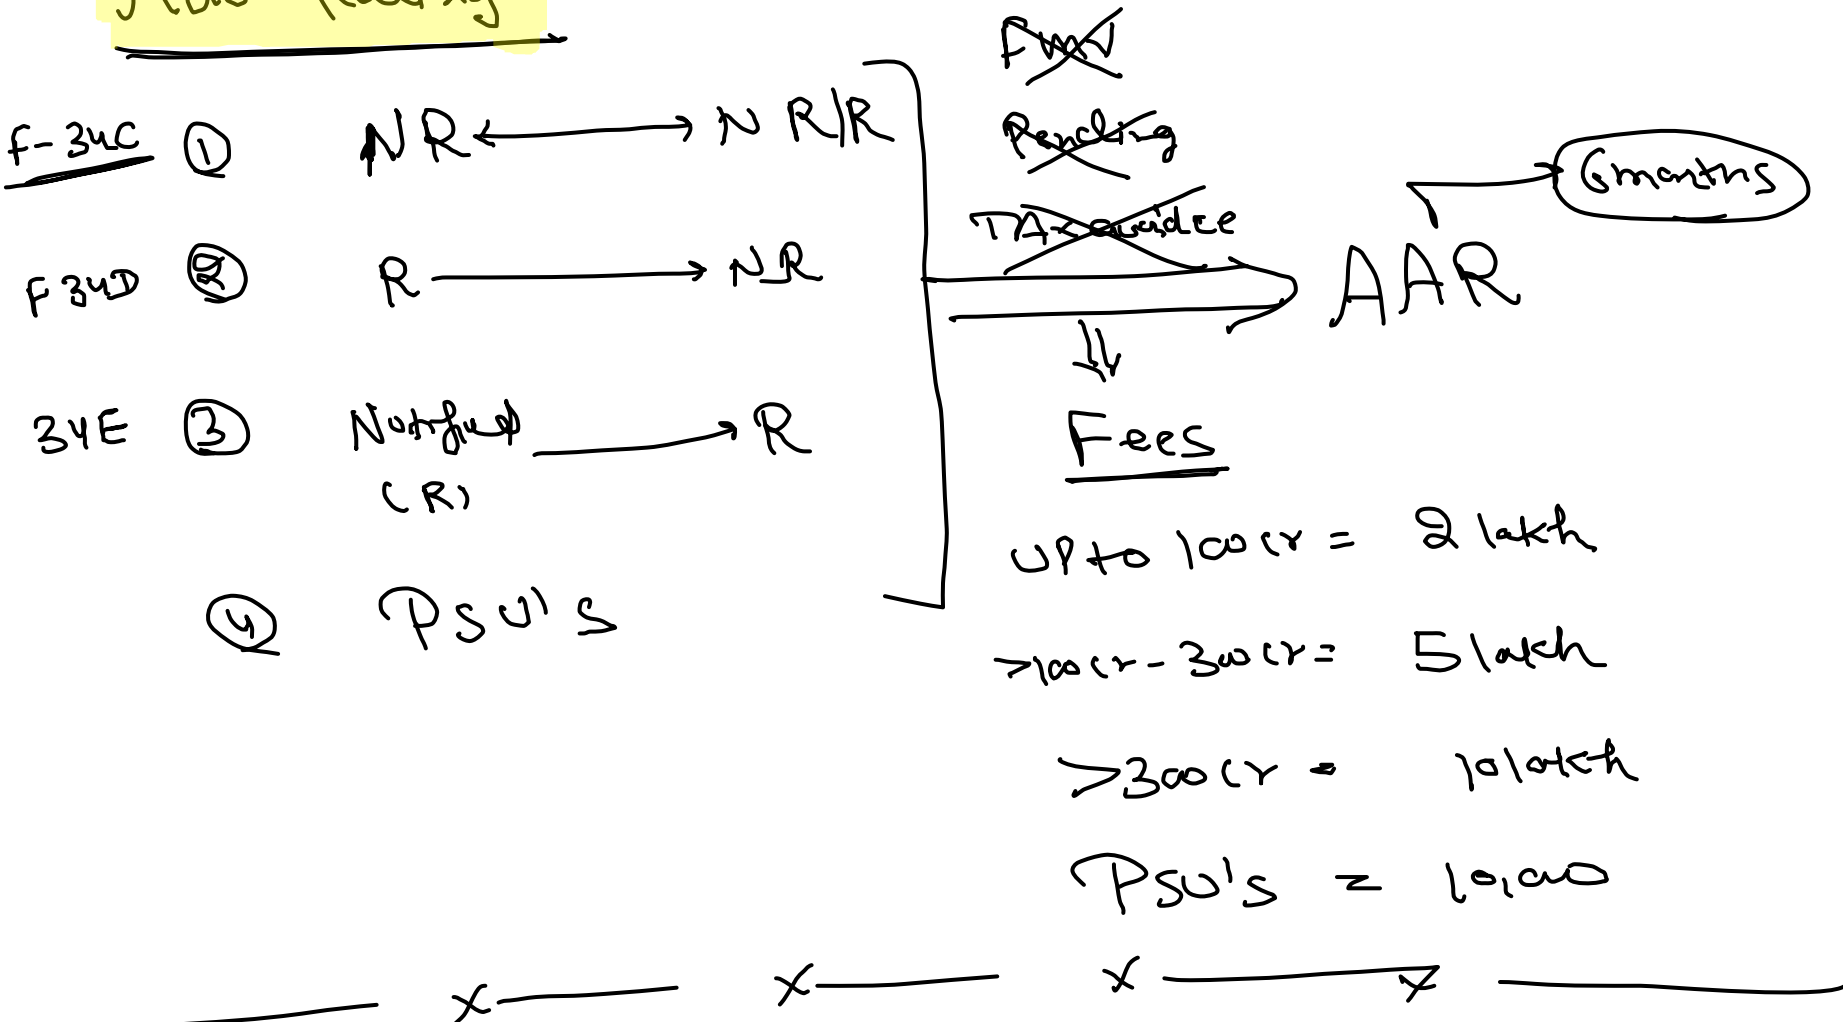 F-34C ① NR ⟷ NR/R
F34D ② R → NR
34E ③ Notified → R
(R)
④ PSU's
FMV
Pending
TAx avoidce
AAR
6 months
Fees
UP to 100 cr = 2 lakh
>100 cr - 300 cr = 5 lakh
>300 cr = 10 lakh
PSU's = 10,000